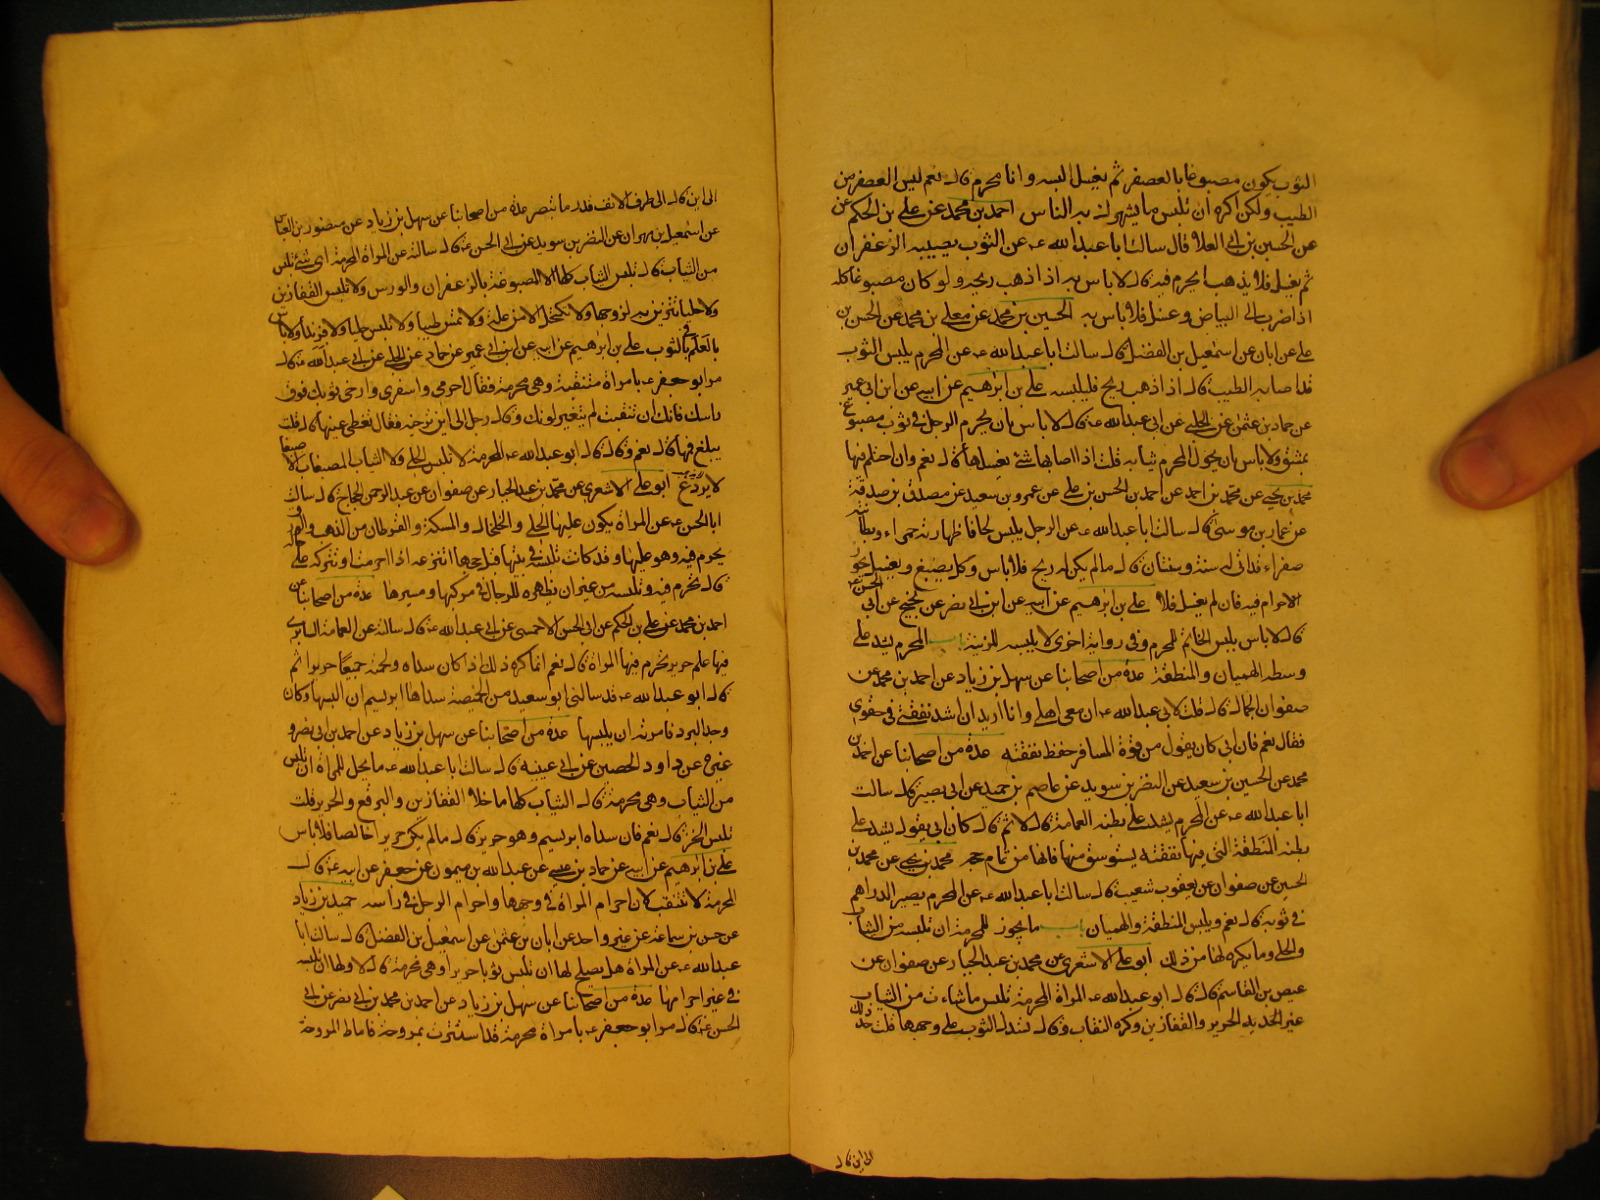 الثوب يكون مصبوغا بالعصفر ثم يغسل البسه وانا محرم قال نعم ليس العصفر من
الطيب ولكن اكره ان تلبس ما يشهرك به الناس احمد بن محمد عن علي بن الحكم عن
عن الحسين بن ابي العلا قال سالت ابا عبد الله ع عن الثوب يصيبه الزعفران
ثم يغسل فلا يذهب ايحرم فيه قال لا باس به اذا ذهب ريحه ولو كان مصبوغا كله
اذا ضرب الى البياض وغسل فلا باس به الحسين بن محمد عن معلى بن محمد عن الحسن بن
علي عن ابان عن اسمعيل بن الفضل قال سالت ابا عبد الله ع عن المحرم يلبس الثوب
قد اصابه الطيب قال اذا ذهب ريح فليلبسه علي بن ابرهيم عن ابيه عن ابن ابي عمير
عن حماد بن عثمن عن الحلبي عن ابي عبد الله ع قال لا باس بان يحرم الرجل في ثوب مصبوغ
بمشق ولا باس بان يحول المحرم ثيابه قلت اذا اصابها شئ يغسلها قال نعم وان احتلم فيها
محمد بن يحيى عن محمد بن احمد عن احمد بن الحسن بن علي عن عمرو بن سعيد عن مصدق بن صدقة
عن عمار بن موسى قال سالت ابا عبد الله ع عن الرجل يلبس لحافا ظهارته حمراء وبطانته
صفراء قد اتى له سنة وسنتان قال ما لم يكن له ريح فلا باس وكل يصبغ ويغسل يجوز
الاحرام فيه فان لم يغسل فلا علي بن ابرهيم عن ابيه عن ابن ابي نصر عن نجيح عن ابي الحسن ع
قال لا باس بلبس الخاتم للمحرم وفي رواية اخرى لا يلبسه للزينة باب المحرم يشد على
وسطه الهميان والمنطقة عدة من اصحابنا عن سهل بن زياد عن احمد بن محمد عن
صفوان الجمال قال قلت لابي عبد الله ع ان معي اهلي وانا اريد ان اشد نفقتي في حقوي
فقال نعم فان ابي كان يقول من قوة المسافر حفظ نفقته عدة من اصحابنا عن احمد بن
محمد عن الحسين بن سعيد عن النضر بن سويد عن عاصم بن حميد عن ابي بصير قال سالت
ابا عبد الله ع عن المحرم يشد على بطنه العمامة قال لا ثم قال كان ابي يقول يشد على
بطنه المنطقة التي فيها نفقته يستوثق منها فانها من تمام حجه محمد بن يحيى عن محمد بن
الحسين عن صفوان عن يعقوب شعيب قال سالت ابا عبد الله ع عن المحرم يصير الدراهم
في ثوبه قال نعم ويلبس المنطقة والهميان باب ما يجوز للمحرمة ان تلبسه من الثياب
والحلي وما يكره لها من ذلك ابو علي الاشعري عن محمد بن عبد الجبار عن صفوان عن
عيص بن القاسم قال قال ابو عبد الله ع المراة المحرمة تلبس ما شاءت من الثياب
غير الحرير والقفازين وكره النقاب وقال تسدل الثوب على وجهها قلت حد ذلك
الى اين قال
الى اين قال الى طرف الانف قدر ما تبصر عدة من اصحابنا عن سهل بن زياد عن منصور بن العباس
عن اسمعيل بن مهران عن النضر بن سويد عن ابي الحسن ع قال سالته عن المراة المحرمة اي شئ تلبس
من الثياب قال تلبس الثياب كلها الا المصبوغة بالزعفران والورس ولا تلبس القفازين
ولا حليا تتزين به لزوجها ولا تكتحل الا من علة ولا تمس طيبا ولا تلبس حليا ولا فرندا ولا باس
بالعلم في الثوب علي بن ابرهيم عن ابيه عن ابن ابي عمير عن حماد عن الحلبي عن ابي عبد الله ع قال
مر ابو جعفر ع بامراة متنقبة وهي محرمة فقال احرمي واسفري وارخي ثوبك من فوق
راسك فانك ان تنقبت لم يتغير لونك وقال رجل الى اين ترخيه فقال تغطي عينها قال قلت
يبلغ فمها قال نعم وقال قال ابو عبد الله ع المحرمة لا تلبس الحلي ولا الثياب المصبغات الا صبغا
لا يردع ابو علي الاشعري عن محمد بن عبد الجبار عن صفوان عن عبد الرحمن الحجاج قال سالت
ابا الحسن ع عن المراة يكون عليها الحلي والخلخال والمسكة والقرطان من الذهب والورق
يحرم فيه وهو عليها وقد كانت تلبسه في بيتها قبل حجها اتنزعه اذا احرمت او تتركه على حاله
قال تحرم فيه وتلبسه من غير ان تظهره للرجال في مركبها ومسيرها عدة من اصحابنا عن
احمد بن محمد عن علي بن الحكم عن ابي الحسن الاحمسي عن ابي عبد الله ع قال سالته عن العمامة السابري
فيها علم حرير تحرم فيها المراة قال نعم انما كره ذلك اذا كان سداه ولحمته جميعا حريرا ثم
قال ابو عبد الله ع قد سالني ابو سعيد من الخميصة سداها ابريسم ان البسها وكان
وجد البرد فامرته ان يلبسها عدة من اصحابنا عن سهل بن زياد عن احمد بن ابي نصر و
غيره عن داود الحصين عن ابي عيينة قال سالت ابا عبد الله ع ما يحل للمراة ان تلبس
من الثياب وهي محرمة قال الثياب كلها ما خلا القفازين والبرقع والحرير قلت
تلبس الخز قال نعم فان سداه ابريسم وهو حرير قال ما لم يكن حريرا خالصا فلا باس
علي بن ابرهيم عن ابيه عن حماد بن عيسى عن عبد الله بن ميمون عن جعفر عن ابيه ع قال
المحرمة لا تتنقب لان احرام المراة في وجهها واحرام الرجل في راسه حميد بن زياد
عن حسن بن سماعة عن غير واحد عن ابان بن عثمن عن اسمعيل بن الفضل قال سالت ابا
عبد الله ع عن المراة هل يصلح لها ان تلبس ثوبا حريرا وهي محرمة قال لا ولها ان تلبسه
في غير احرامها عدة من اصحابنا عن سهل بن زياد عن احمد بن محمد بن ابي نصر عن ابي
الحسن ع قال مر ابو جعفر ع بامراة محرمة قد استترت بمروحة فاماط المروحة